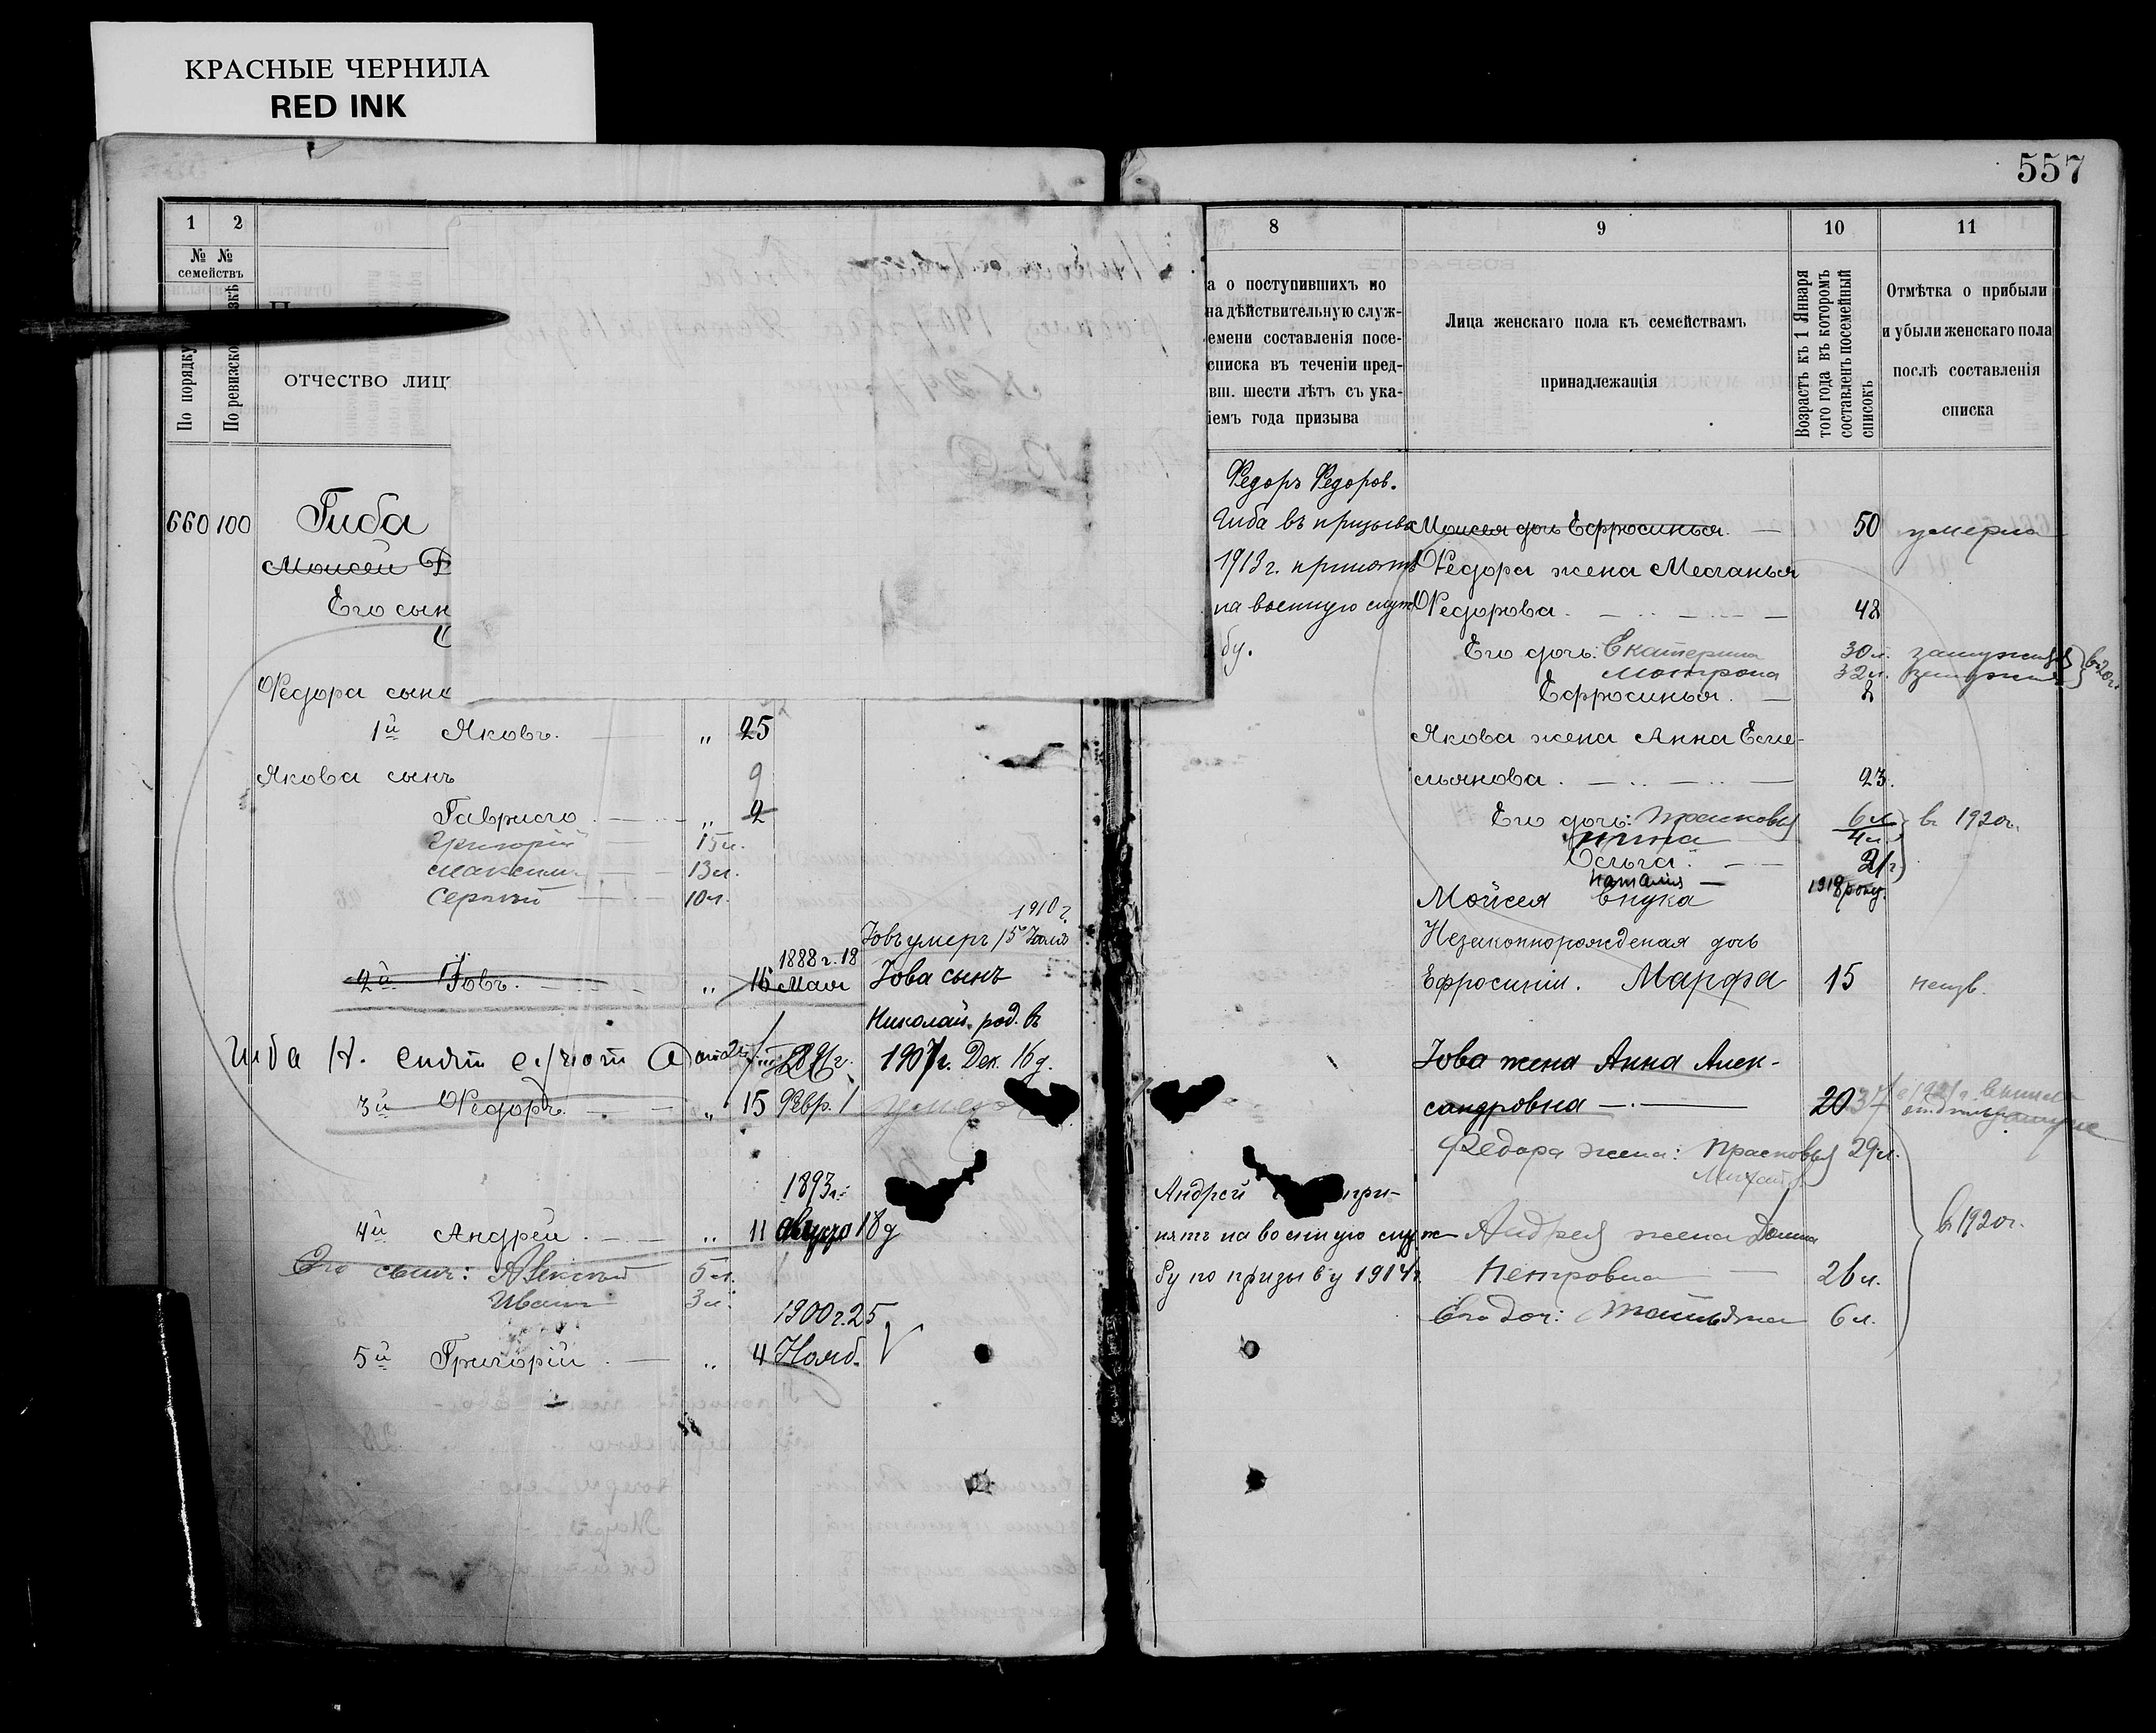 КРАСНЫЕ ЧЕРНИЛА
RED INK
557
1 2
№ №
семействъ
По порядку
По ревизско
отчество лицъ
8
а о поступившихъ по
на дѣйствительную служ-
емени составленія посе-
списка въ теченіи пред-
вш. шести лѣтъ съ ука-
іемъ года призыва
9
Лица женскаго пола къ семействамъ
принадлежащія
10
Возрастъ къ 1 Января
того года въ которомъ
составленъ посемейный
списокъ
11
Отмѣтка о прибыли
и убыли женскаго пола
послѣ составленія
списка
660 100 Гиба
Моисей
Его сын
Федора сын
1й Яковъ. „ 25
Якова сынъ 9
Гаврило „ 2
Григорій 15л.
Максим 13л.
Сергій 10л.
1910 г.
Іовъ умеръ 15
1888 г. 18
2й Іовъ. „ 16 Мая Іова сынъ
Николай род. въ
Гиба Н.
1907г. Дек. 16 д.
3й Федоръ „ 15 Февр. 1 умер
1893г.
4й Андрей „ 11 18 д
Его сын: Алексій 5л.
Иван 3л.
1900 г. 25
5й Григорій „ 4 Нояб.
Федоръ Федоров.
Гиба въ призывъ
1913 г. принятъ
на военную служ
бу.
Андрей при-
нятъ на военную служ
бу по призыву 1914г.
Моисея дочь Ефросинья 50 умерла
Федора жена Меланья
Федорова 48
Его дочь: Екатерина 30л. замужня
Мотрона 32л. замужня
в 20г.
Ефросинья 8
Якова жена Анна Еме-
льянова 23.
Его дочь: 6л. в 1920г.
4л.
Ольга
Наталия 1918 року.
Мойсея внука
Незаконнорожденая дочь
Ефросиніи. Марфа 15 неизв.
Іова жена Анна Алек-
сандровна 20 37
Федора жена: Прасковья 29л.
Андрея жена Домна в 1920г.
Петровна 26л.
Его доч: Татьяна 6л.